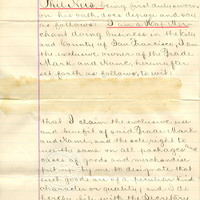 Phil Ries being first duly sworn
on his oath, does depose and say
as follows: I am a Hop Mer-
chant doing business in the City
and County of San Francisco. I am
the exclusive owner of the Trade
Mark and Name, herein after
set forth as follows, to wit:
that I claim the exclusive use
and benefit of said Trade-Mark
and Name, and the sole right to
use the same on all packages
cases of goods and merchandise
put up by me to designate that
such goods are of a peculiar kind
character or quality; and I do
hereby file with the Secretary